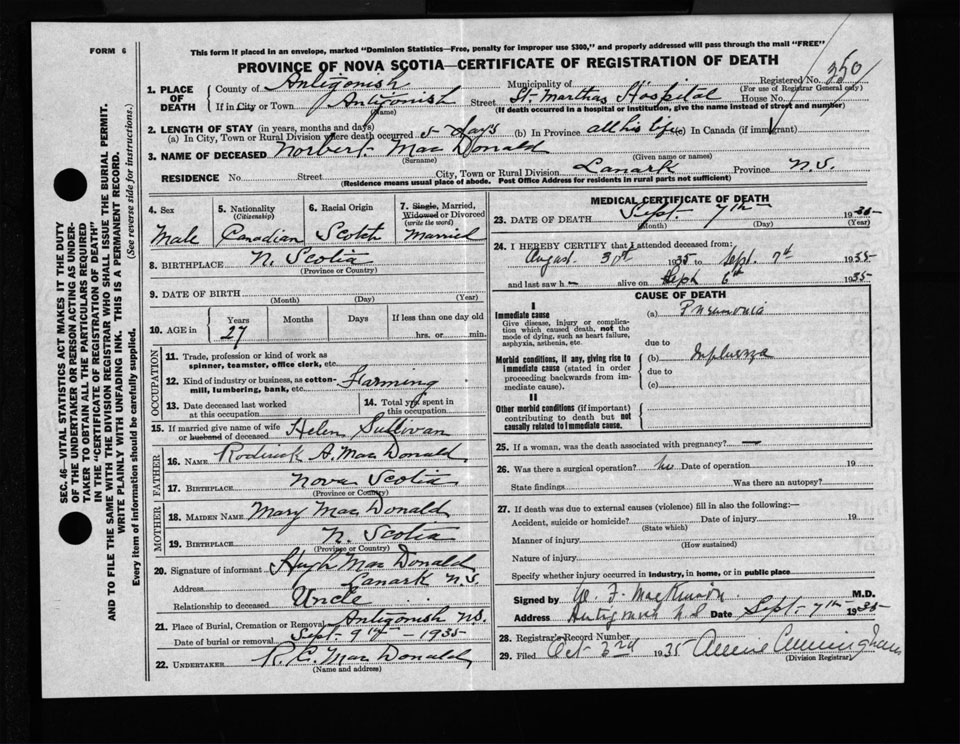 FORM 6
This form if placed in an envelope, marked "Dominion Statistics—Free, penalty for improper use $300," and properly addressed will pass through the mail "FREE"
PROVINCE OF NOVA SCOTIA—CERTIFICATE OF REGISTRATION OF DEATH
Registered No. 350
(For use of Registrar General only)
1. PLACE OF DEATH
County of Antigonish Municipality of
If in City or Town Antigonish Street St. Marthas Hospital House No.
(Name) (If death occurred in a hospital or institution, give the name instead of street and number)
2. LENGTH OF STAY (in years, months and days)
(a) In City, Town or Rural Division where death occurred 5- days (b) In Province all his life (c) In Canada (if immigrant)
3. NAME OF DECEASED Norbert MacDonald
(Surname) (Given name or names)
RESIDENCE No. Street City, Town or Rural Division Lanark Province N.S.
(Residence means usual place of abode. Post Office Address for residents in rural parts not sufficient)
SEC. 46—VITAL STATISTICS ACT MAKES IT THE DUTY
OF THE UNDERTAKER OR PERSON ACTING AS UNDER-
TAKER TO OBTAIN ALL THE PARTICULARS REQUIRED
IN THE "CERTIFICATE OF REGISTRATION OF DEATH"
AND TO FILE THE SAME WITH THE DIVISION REGISTRAR WHO SHALL ISSUE THE BURIAL PERMIT.
WRITE PLAINLY WITH UNFADING INK. THIS IS A PERMANENT RECORD.
Every item of information should be carefully supplied. (See reverse side for instructions.)
4. Sex
Male
5. Nationality
(Citizenship)
Canadian
6. Racial Origin
Scotch
7. Single, Married,
Widowed or Divorced
(write the word)
Married
8. BIRTHPLACE N. Scotia
(Province or Country)
9. DATE OF BIRTH
(Month) (Day) (Year)
10. AGE in Years 27 Months Days If less than one day old
hrs. or min.
OCCUPATION
11. Trade, profession or kind of work as
spinner, teamster, office clerk, etc.
12. Kind of industry or business, as cotton-
mill, lumbering, bank, etc. Farming
13. Date deceased last worked
at this occupation
14. Total yrs spent in
this occupation
15. If married give name of wife
or husband of deceased Helen Sullivan
FATHER
16. NAME Roderick A. MacDonald
17. BIRTHPLACE Nova Scotia
(Province or Country)
MOTHER
18. MAIDEN NAME Mary MacDonald
19. BIRTHPLACE N. Scotia
(Province or Country)
20. Signature of informant Hugh MacDonald
Address Lanark N.S.
Relationship to deceased Uncle
21. Place of Burial, Cremation or Removal Antigonish N.S.
Date of burial or removal Sept- 9th - 1935
22. UNDERTAKER R. C. MacDonald
(Name and address)
MEDICAL CERTIFICATE OF DEATH
23. DATE OF DEATH Sept. 7th 1935
(Month) (Day) (Year)
24. I HEREBY CERTIFY that I attended deceased from:
August 1935 to Sept. 7th 1935
and last saw h alive on Sept 6th 1935
CAUSE OF DEATH
I
Immediate cause
Give disease, injury or complica-
tion which caused death, not the
mode of dying, such as heart failure,
asphyxia, asthenia, etc.
(a) Pneumonia
due to
Morbid conditions, if any, giving rise to
immediate cause (stated in order
proceeding backwards from im-
mediate cause).
(b) Influenza
due to
(c)
II
Other morbid conditions (if important)
contributing to death but not
causally related to immediate cause.
25. If a woman, was the death associated with pregnancy? —
26. Was there a surgical operation? No Date of operation 19
State findings Was there an autopsy?
27. If death was due to external causes (violence) fill in also the following:—
Accident, suicide or homicide? Date of injury 19
(State which)
Manner of injury
(How sustained)
Nature of injury
Specify whether injury occurred in industry, in home, or in public place
Signed by W. F. MacKinnon M.D.
Address Antigonish N.S Date Sept- 7th 1935
28. Registrar's Record Number
29. Filed Oct 3rd 1935 Cunningham
(Division Registrar)